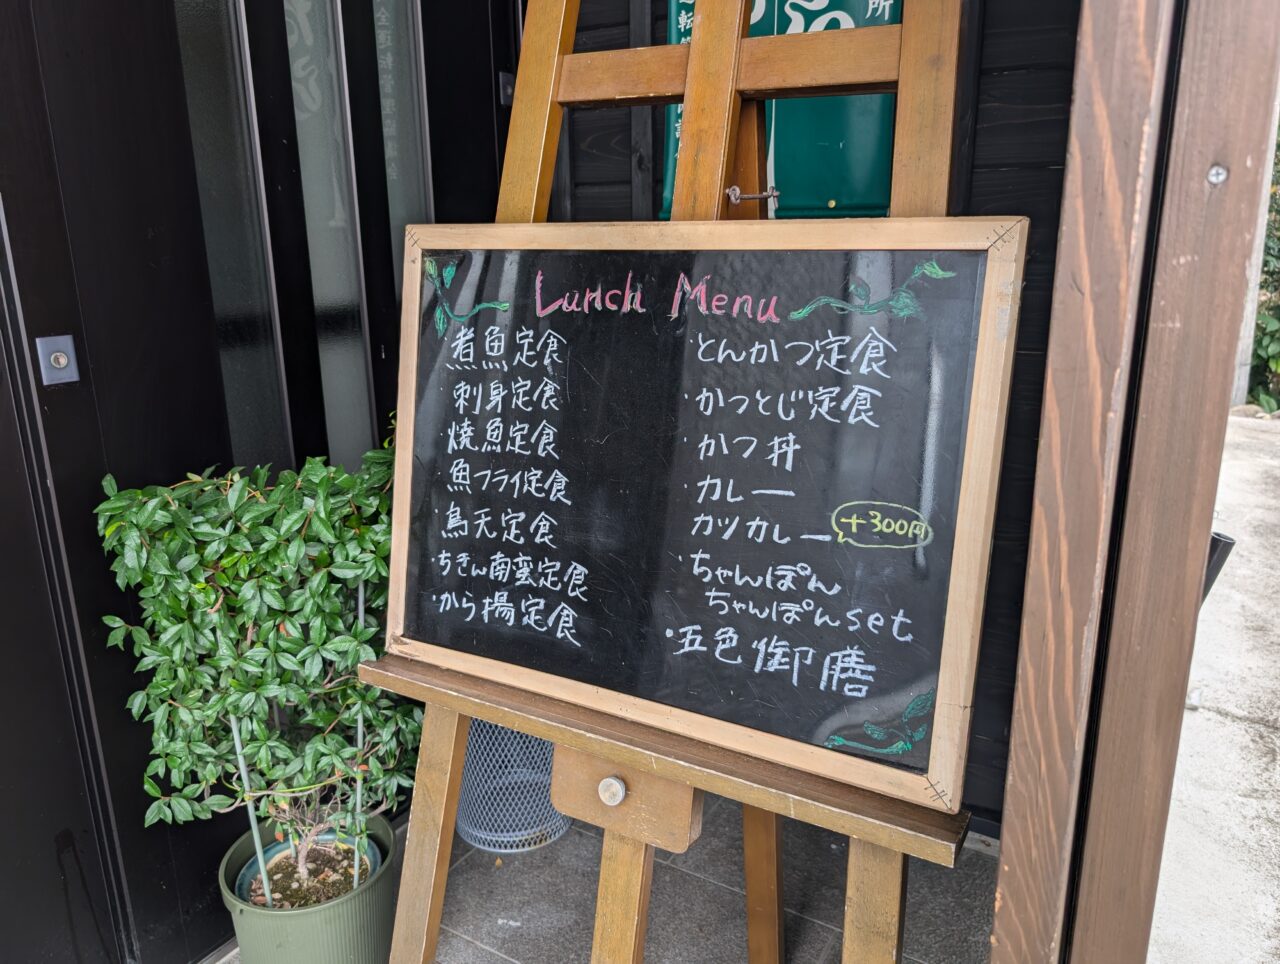 全運転管理協
所
Lunch Menu
煮魚定食
刺身定食
焼魚定食
魚フライ定食
鳥天定食
・ちきん南蛮定食
・から揚定食
・とんかつ定食
・かつとじ定食
・かつ丼
カレー
カツカレー +300円
・ちゃんぽん
ちゃんぽんset
・五色御膳